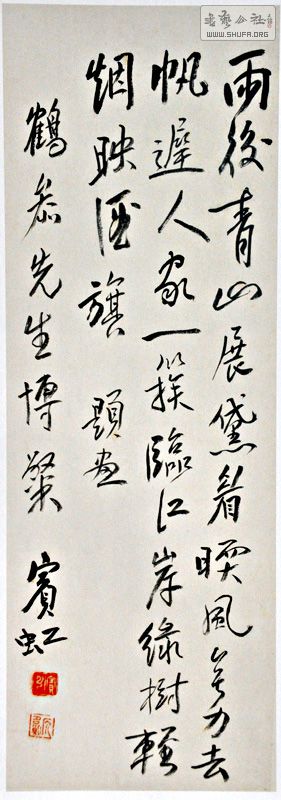 书艺公社
WWW.SHUFA.ORG
雨後青山展黛眉暖風無力去
帆遲人家一簇臨江岸綠樹輕
烟映酒旗 題畫
鶴先生博粲 賓虹